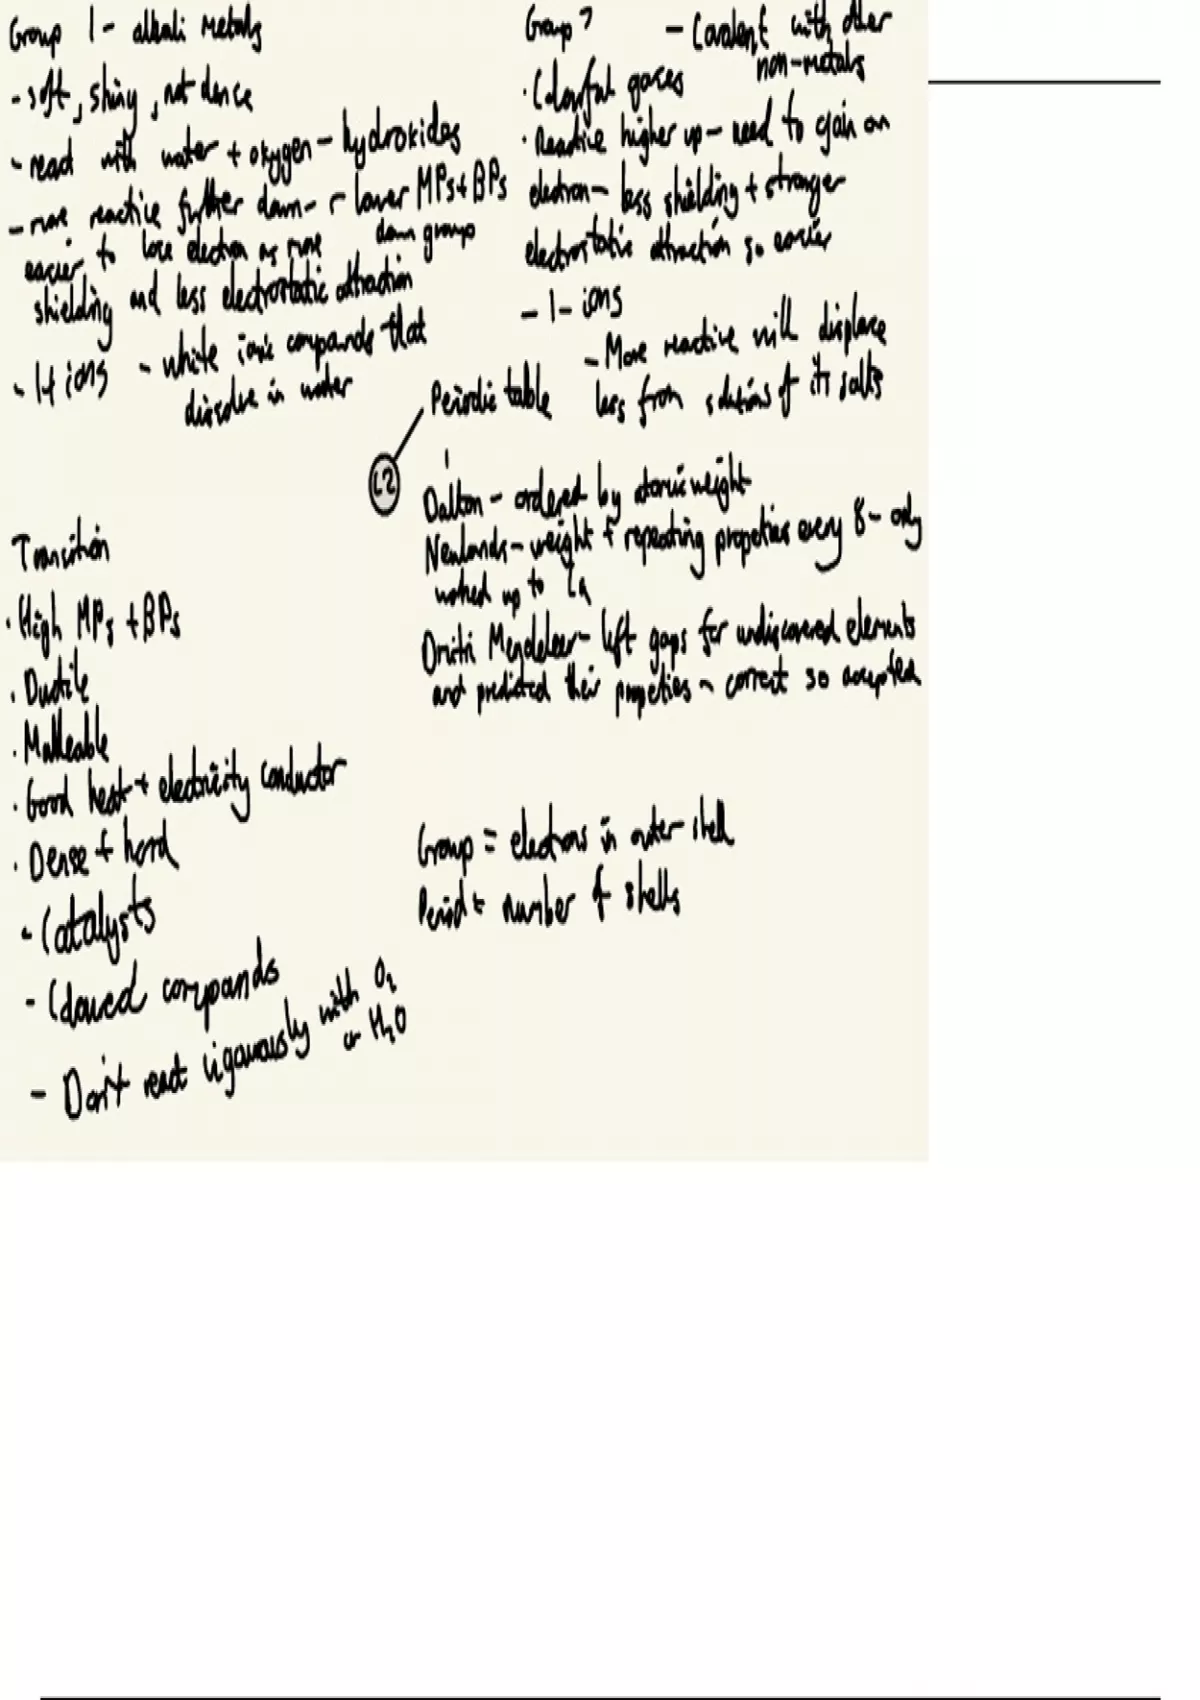 Group 1 - alkali metals
- soft, shiny, not dense
- react with water + oxygen - hydroxides
- more reactive further down -
easier to lose electron as more
shielding and less electrostatic attraction
- lower MPs + BPs
down group
- 1+ ions
- white ionic compounds that
dissolve in water
Group 7
- Covalent with other
non-metals
· Colorful gases
· Reactive higher up - need to gain an
electron - less shielding + stronger
electrostatic attraction so easier
- 1- ions
- More reactive will displace
less from solutions of its salts
C2
Periodic table
Dalton - ordered by atomic weight
Newlands - weight + repeating properties every 8 - only
worked up to Ca
Dmitri Mendeleev - left gaps for undiscovered elements
and predicted their properties - correct so accepted
Group = electrons in outer shell
Period = number of shells
Transition
· High MPs + BPs
· Ductile
· Malleable
· Good heat + electricity conductor
· Dense + hard
- Catalysts
- Coloured compounds
- Don't react vigorously with O2
or H2O